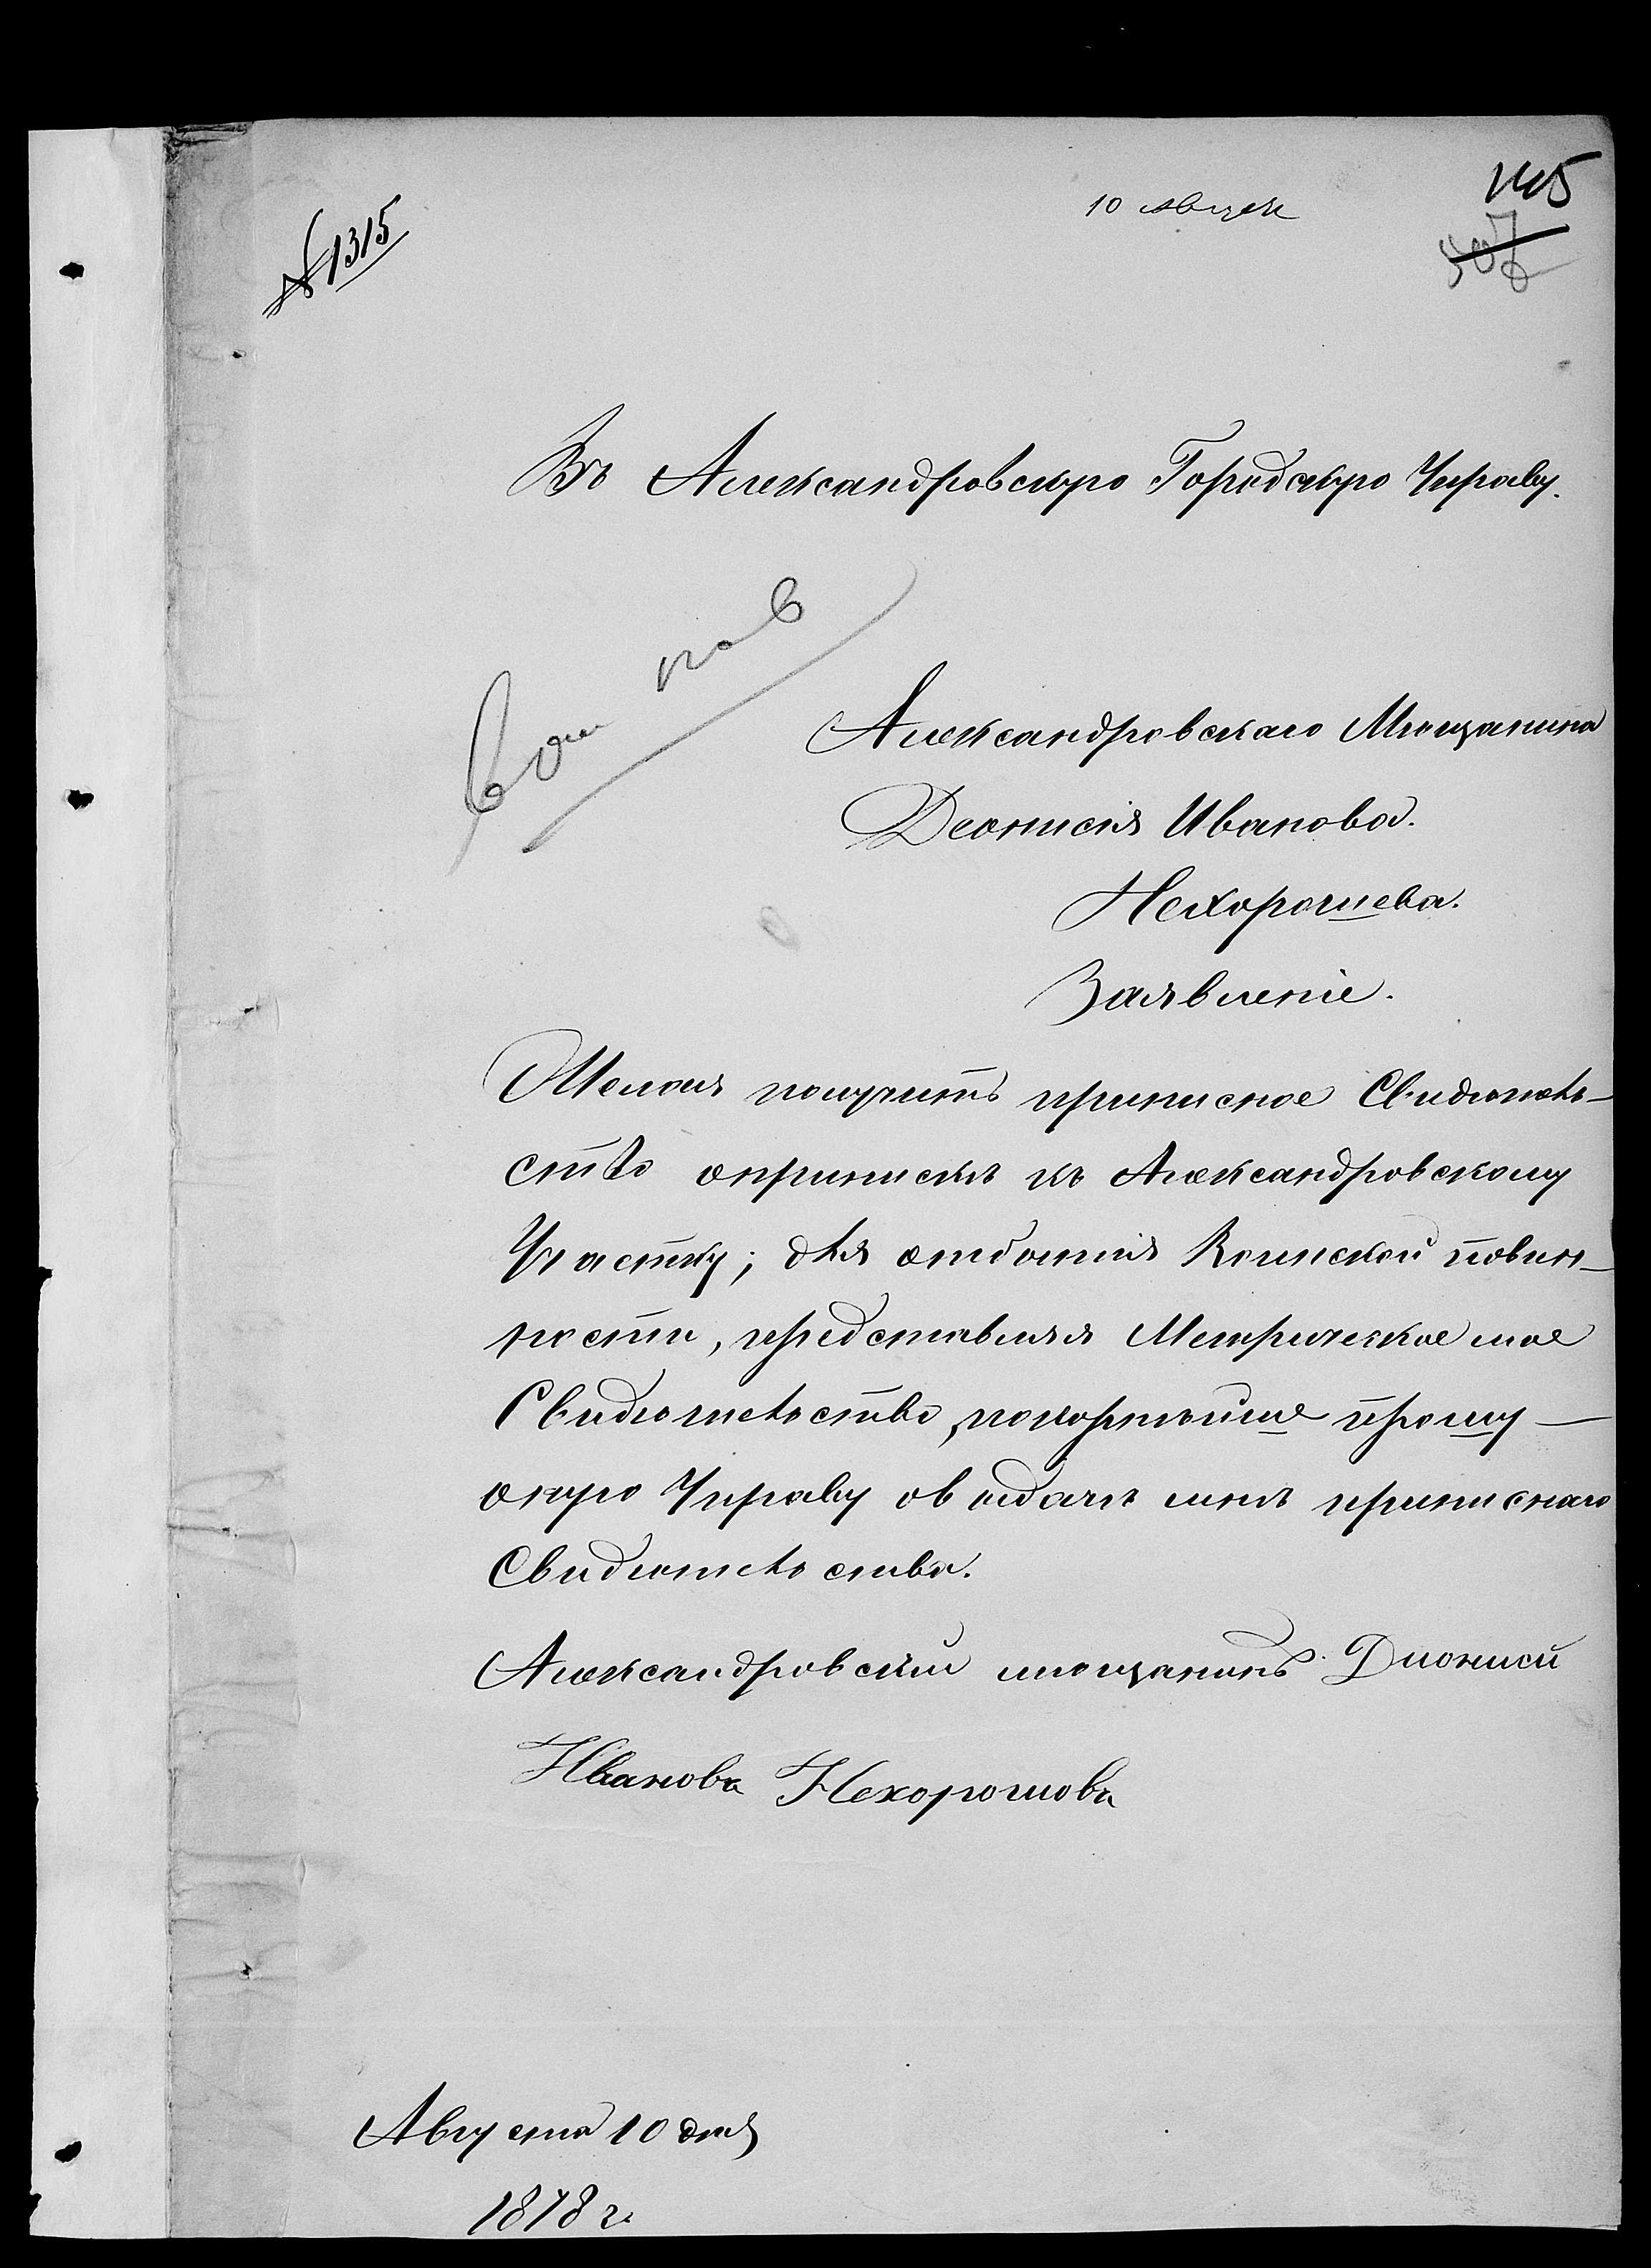 № 1315
10 август
145
507
Въ Александровскую Городскую Управу.
Александровскаго Мещанина
Деонисия Иванова.
Нехорошева.
Заявленіе.
Желая получить приписное Свидѣтель-
ство о приписке къ Александровскому
Участку; для отбытия Воинской повин-
ности, представляя Метрическое мое
Свидетельство, покорнѣйше прошу -
оную Управу о видаче мне приписнаго
Свидетельства.
Александровский мещанинъ Дионисй
Иванова Нехорошова
Августа 10 дня
1878 г.